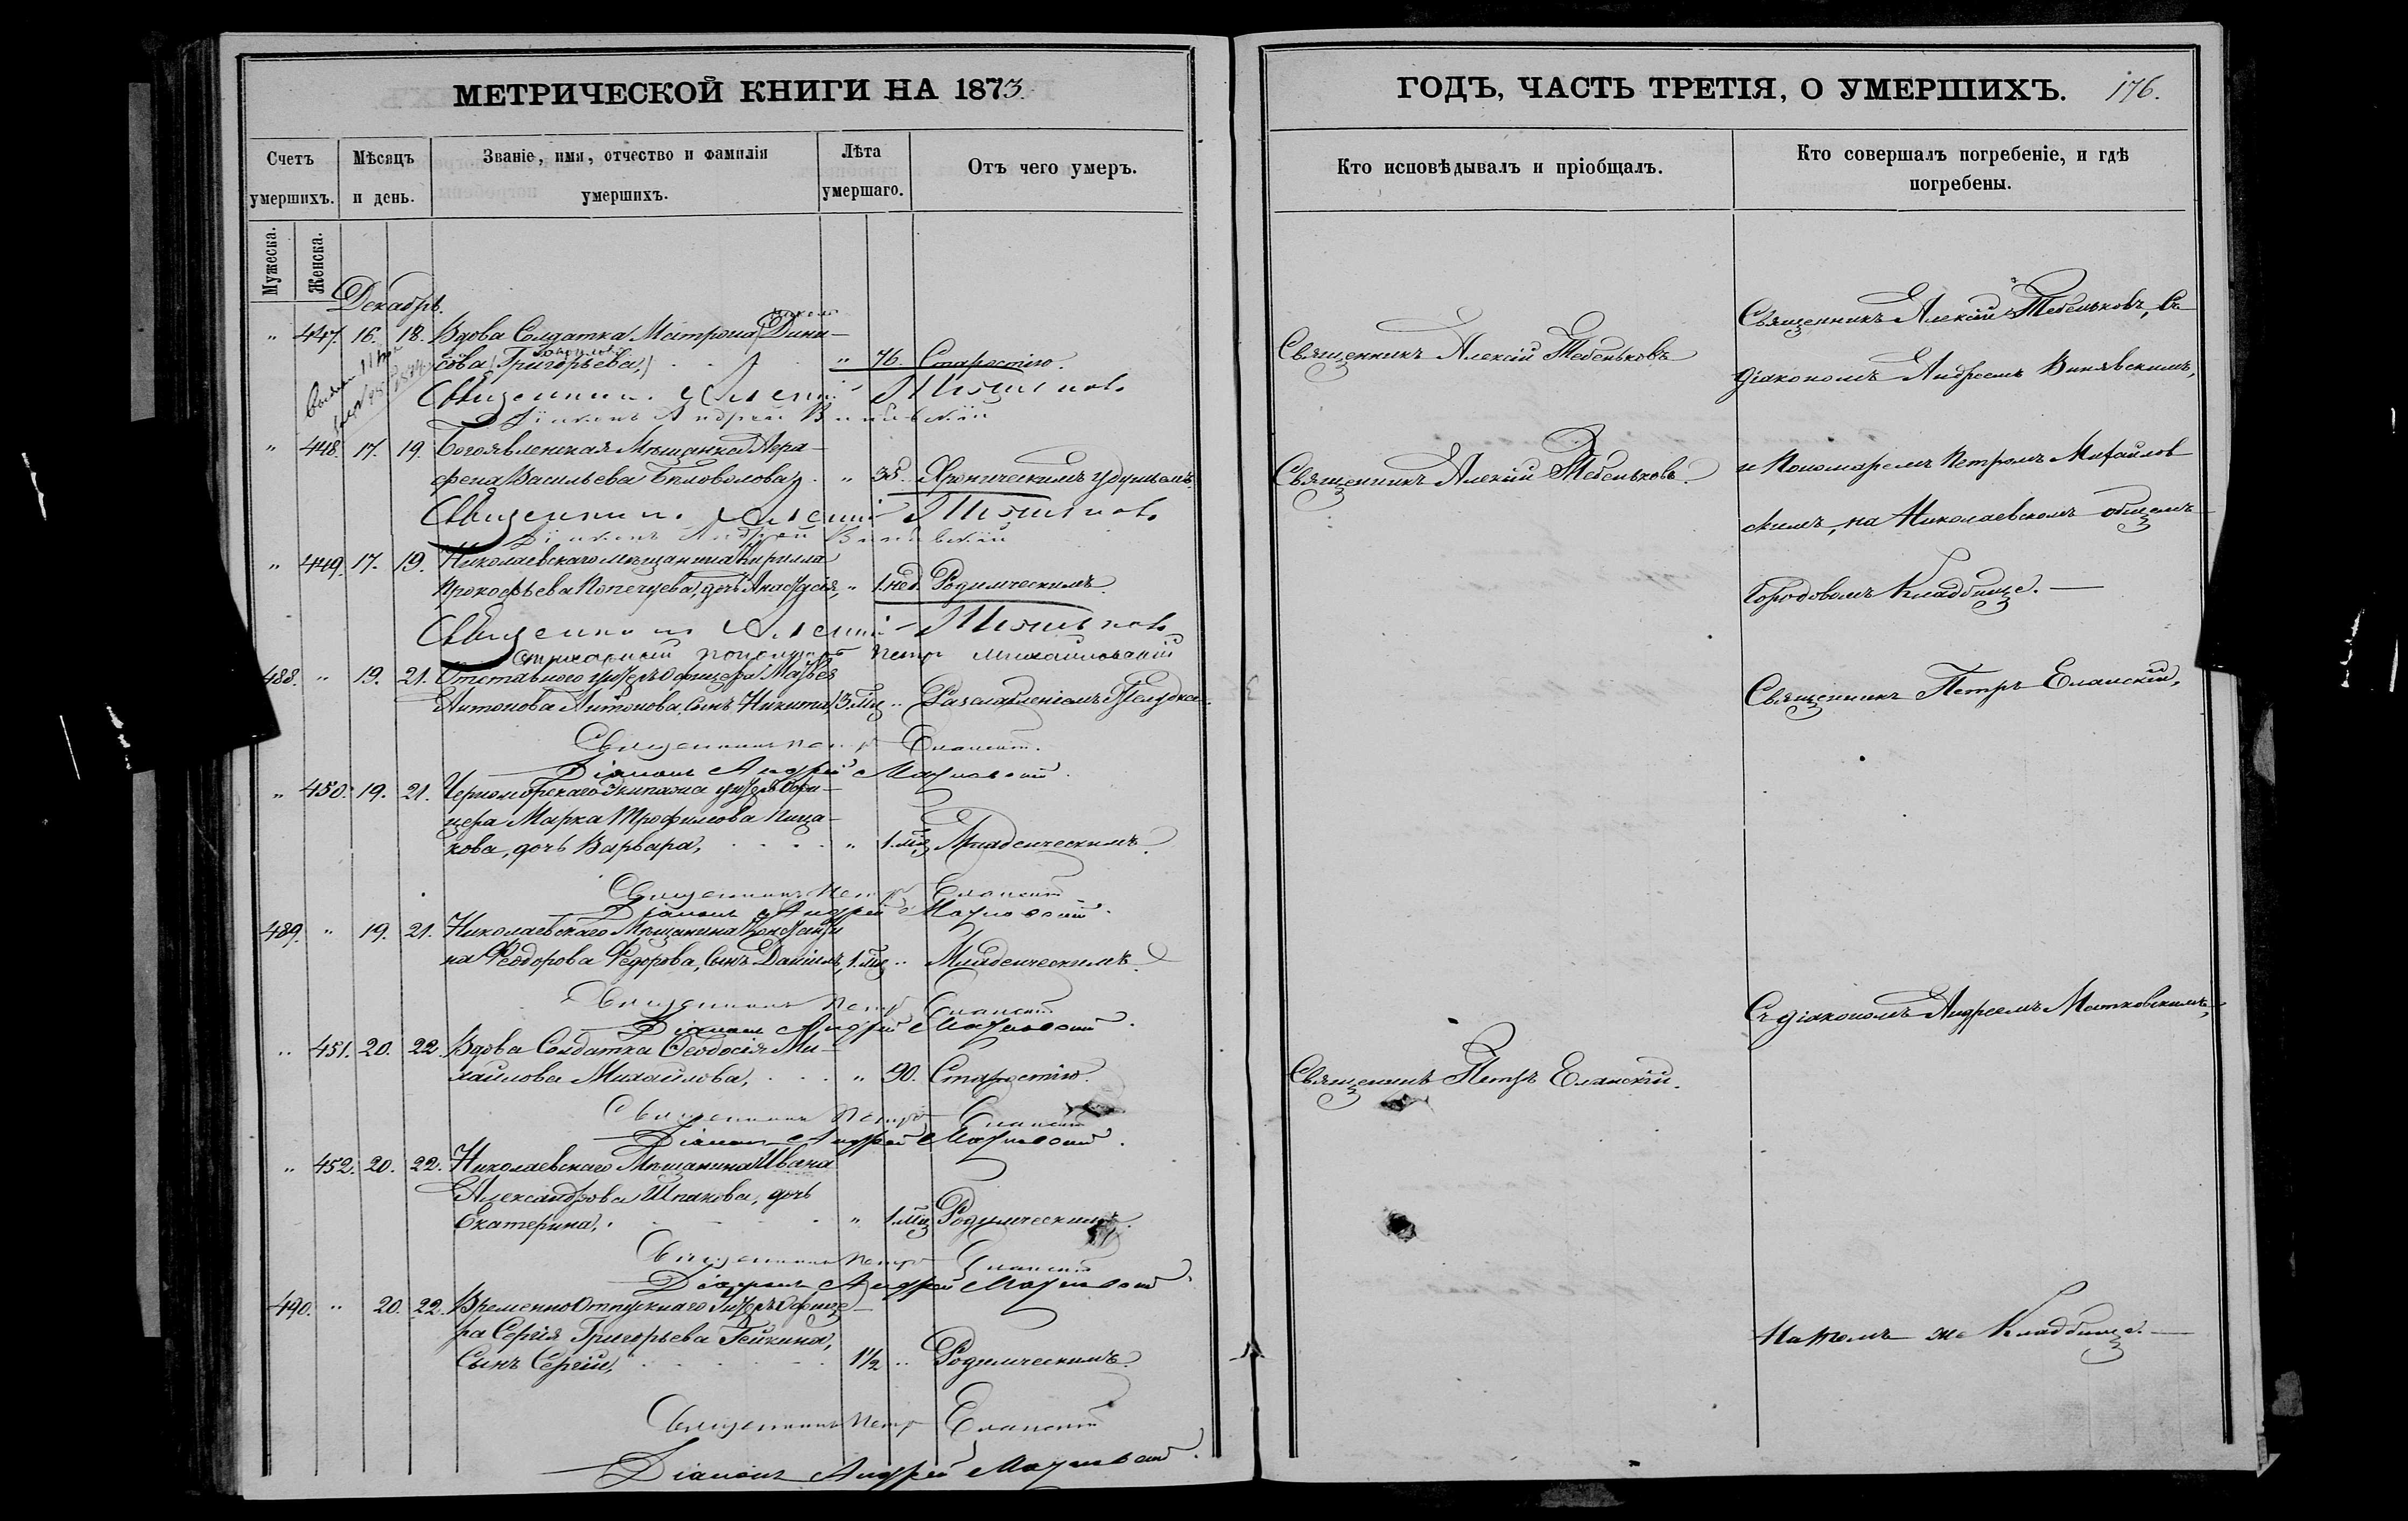 МЕТРИЧЕСКОЙ КНИГИ НА 1873.
Счетъ умершихъ.
Мѣсяцъ и день.
Званіе, имя, отчество и фамилія умершихъ.
Лѣта умершаго.
Отъ чего умеръ.
Мужеска.
Женска.
Декабрь.
" 447. 16. 18. Вдова Солдатка Матрона Дени-
сова (Григорьева) " 76. Старостію.
Священникъ Алексій Тебеньковъ
Діаконъ Андрей Винявскій
" 448. 17. 19. Богоявленская Мѣщанка Агра-
фена Васильева Бѣловолова, " 35. Хроническимъ удушьемъ.
Священникъ Алексій Тебеньковъ
Діаконъ Андрей Винявскій
" 449. 17. 19. Николаевскаго мѣщанина Кирилла
Прокофьева дочь Анастасія, " 1. нед. Родимческимъ.
Священникъ Алексій Тебеньковъ
Пономарь Петръ Михайловскій
488. " 19. 21. Отставного унтеръ Офицера Матвея
Антонова Антонова, сынъ Никита, 3. мц. " Разслабленіемъ Желудка.
Священникъ Петръ Еланскій.
Діаконъ Андрей Матковскій.
" 450. 19. 21. Черноморскаго Экипажа унтеръ Офи-
цера Марка Трофимова Пища-
кова, дочь Варвара, " 1. мц. Младенческимъ.
Священникъ Петръ Еланскій
Діаконъ Андрей Матковскій.
489. " 19. 21. Николаевскаго Мѣщанина Константи
на Феодорова Федорова, Сынъ Даніилъ, 1. мц. " Младенческимъ.
Священникъ Петръ Еланскій
Діаконъ Андрей Матковскій.
" 451. 20. 22. Вдова Солдатка Ѳеодосія Ми-
хайлова Михайлова, " 90. Старостію.
Священникъ Петръ Еланскій
Діаконъ Андрей Матковскій.
" 452. 20. 22. Николаевскаго Мѣщанина Ивана
Александрова Шпакова, дочь
Екатерина, " 1. мц. Родимческимъ.
Священникъ Петръ Еланскій
Діаконъ Андрей Матковскій.
490. " 20. 22. Временно Отпускнаго Унтеръ Офице-
ра Сергія Григорьева Гейкина,
Сынъ Сергій, 1½ " Родимческимъ.
Священникъ Петръ Еланскій
Діаконъ Андрей Матковскій.
ГОДЪ, ЧАСТЬ ТРЕТІЯ, О УМЕРШИХЪ. 176.
Кто исповѣдывалъ и пріобщалъ.
Кто совершалъ погребеніе, и гдѣ
погребены.
Священникъ Алексій Тебеньковъ
Священникъ Алексій Тебеньковъ.
Священникъ Петръ Еланскій.
Священникъ Алексій Тебеньковъ, Съ
діакономъ Андреемъ Винявскимъ,
и Пономаремъ Петромъ Михайлов
скимъ, на Николаевскомъ общемъ
Городовомъ Кладбище. —
Священникъ Петръ Еланскій,
Съ діакономъ Андреемъ Матковскимъ,
На томъ же Кладбище. —